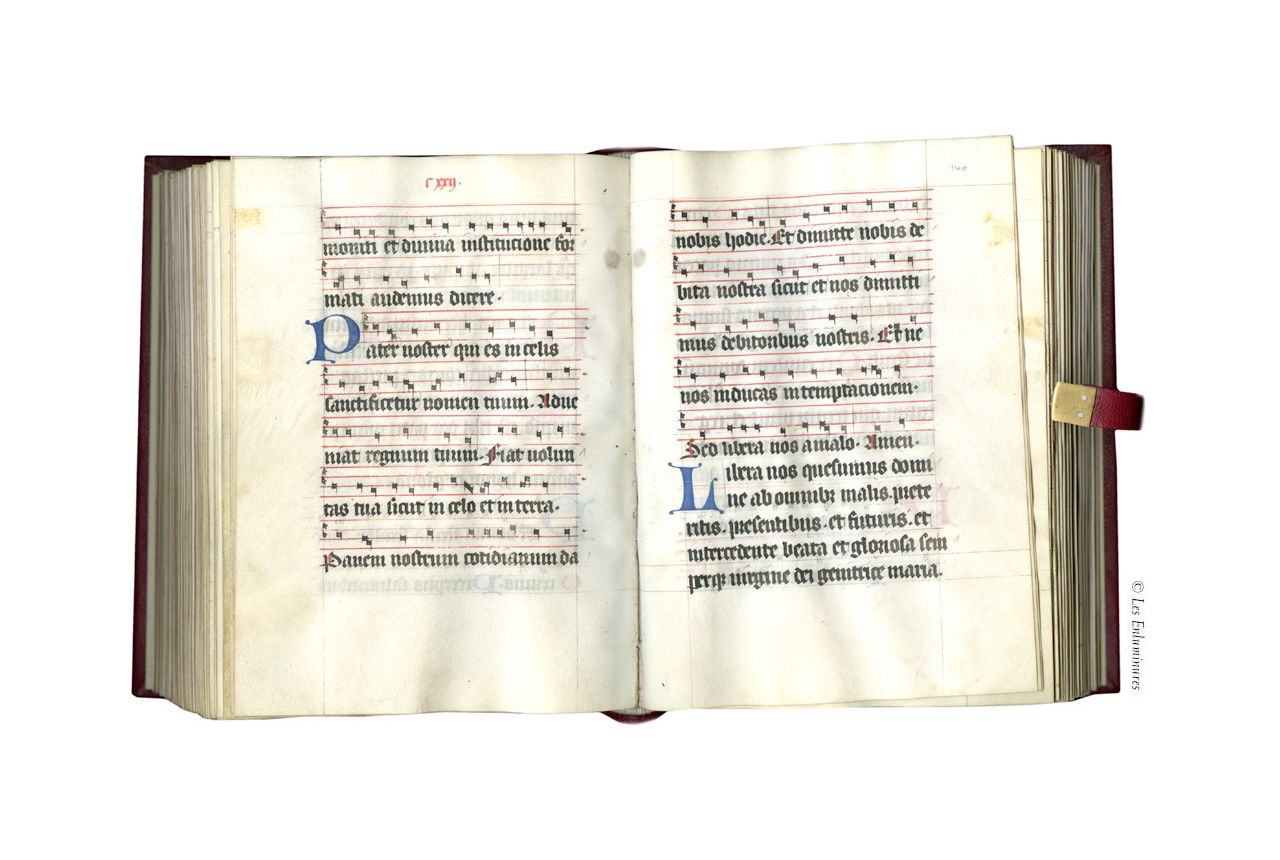 c xxij.
moniti et divina institucione for
mati audemus dicere.
Pater noster qui es in celis
sanctificetur nomen tuum. Adue
niat regnum tuum. Fiat volun
tas tua sicut in celo et in terra.
Panem nostrum cotidianum da
160
nobis hodie. Et dimitte nobis de
bita nostra sicut et nos dimitti
mus debitoribus nostris. Et ne
nos inducas in temptacionem.
Sed libera nos a malo. Amen.
Libera nos quesumus domi
ne ab omnibz malis. prete
ritis. presentibus. et futuris. et
intercedente beata et gloriosa sem
perqz uirgine dei genitrice maria.
© Les Enluminures